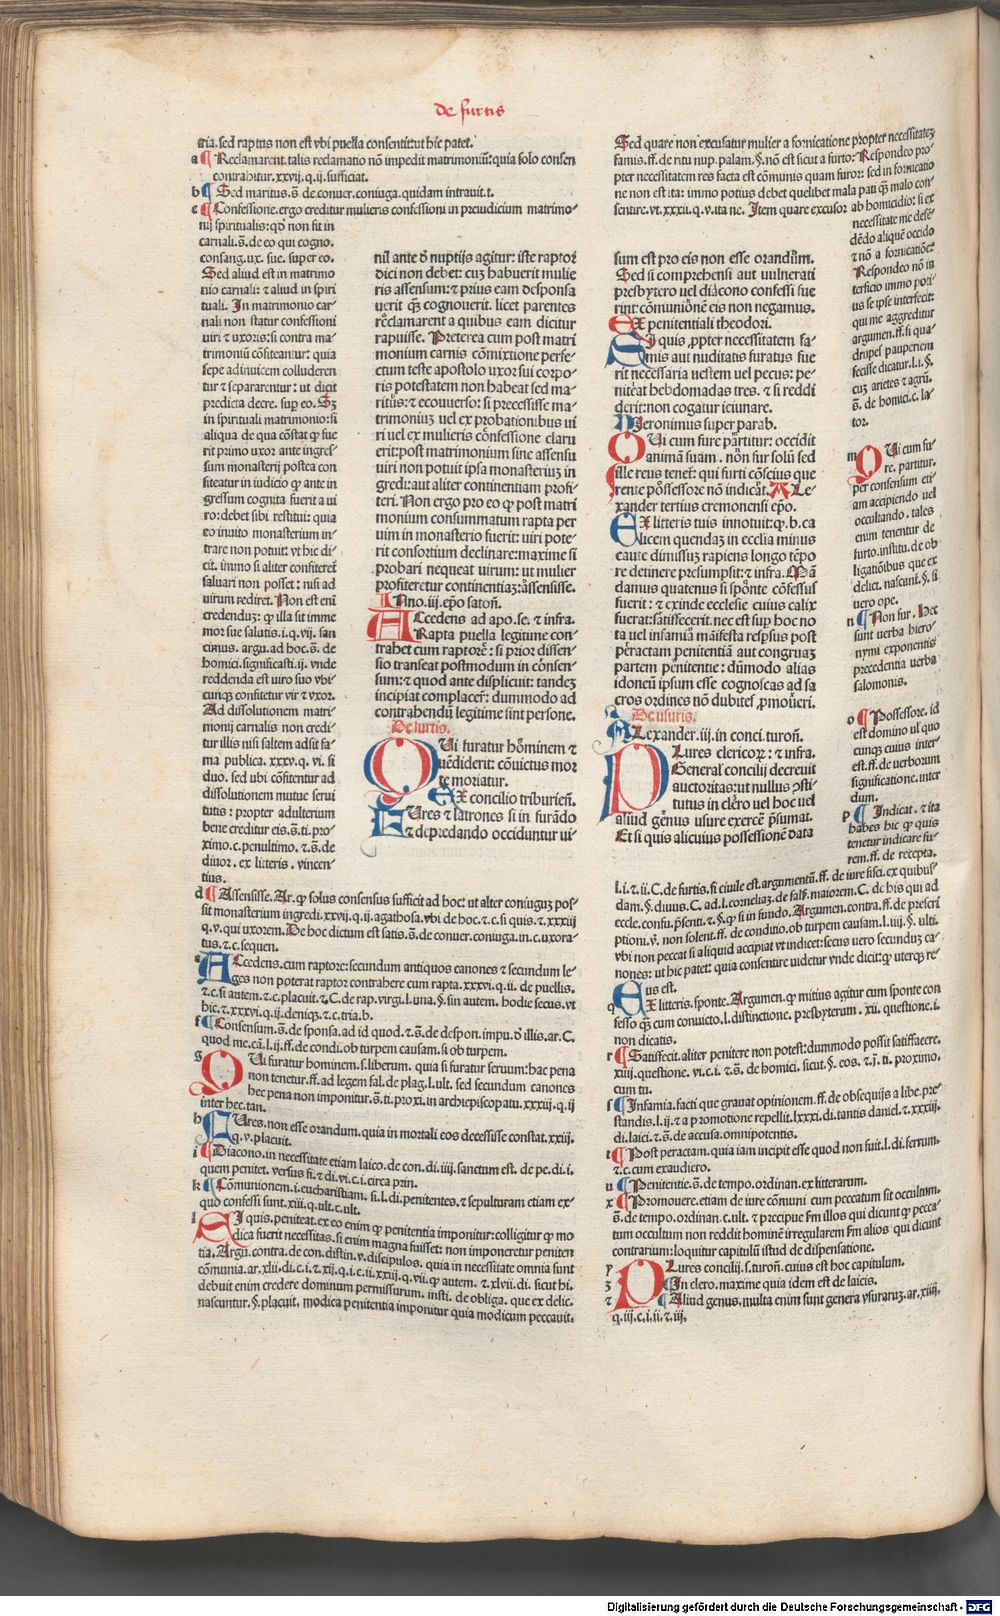 De furtis
tria. sed raptus non est vbi puella consentit: vt hic patet.
a ¶ Reclamarent. talis reclamatio nō impedit matrimoniū: quia solo consen
contrahitur. xxvij. q. ij. sufficiat.
b ¶ Sed maritus. s̄. de conuer. coniuga. quidam intrauit. t.
c ¶ Confessione. ergo creditur mulieris confessioni in preiudicium matrimo-
nij spiritualis: qđ non fit in
carnali. s̄. de eo qui cogno.
consang. ux. sue. super eo.
Sed aliud est in matrimo
nio carnali: ⁊ aliud in spiri
tuali. In matrimonio car-
nali non statur confessioni
uiri ⁊ uxoris: si contra ma-
trimoniū cōfiteantur: quia
sepe adinuicem colluderen
tur ⁊ separarentur: ut dicit
predicta decre. sup eo. Sz
in spirituali matrimonio: si
aliqua de qua cōstat ꝙ fue
rit primo uxor ante ingres
sum monasterij postea con
fiteatur in iudicio ꝙ ante in
gressum cognita fuerit a ui
ro: debet sibi restitui: quia
eo inuito monasterium in-
trare non potuit: vt hic di-
cit. immo si aliter confiteret
saluari non posset: nisi ad
uirum rediret. Non est enī
credendum: ꝙ illa sit imme
mor sue salutis. i. q. vij. san
cimus. argu. ad hoc. s̄. de
homici. significasti. ij. vnde
reddenda est uiro suo vbi-
cunqꝫ confitetur vir ⁊ vxor.
Ad dissolutionem matri-
monij carnalis non credi-
tur illis nisi saltem adsit fa-
ma publica. xxxv. q. vi. si
duo. sed ubi cōfitentur ad
dissolutionem mutue serui
tutis: propter adulterium
bene creditur eis. s̄. ti. pro-
ximo. c. penultimo. ⁊. s̄. de
diuor. ex litteris. vincen-
tius.
d ¶ Assensisse. Ar. ꝙ solus consensus sufficit ad hoc ut alter coniugum pos-
sit monasterium ingredi. xxvij. q. ij. agathosa. vbi de hoc. ⁊. c. si quis. ⁊. xxxiij
q. v. qui uxorem. De hoc dictum est satis. s̄. de conuer. coniuga. in. c. uxora-
tus. ⁊. c. sequen.
e Accedens. cum raptore: secundum antiquos canones ⁊ secundum le-
ges non poterat raptor contrahere cum rapta. xxxvi. q. ii. de puellis.
⁊. c. si autem. ⁊. c. placuit. ⁊. C. de rap. virgi. l. una. §. sin autem. hodie secus. vt
hic. ⁊. xxxvi. q. ij. deniqꝫ. ⁊. c. tria. b.
f ¶ Consensum. s̄. de sponsa. ad id quod. ⁊. s̄. de despon. impu. d̄ illis. ar. C.
quod me. cā. l. ij. ff. de condi. ob turpem causam. si ob turpem.
g Qui furatur hominem. s. liberum. quia si furatur seruum: hac pena
non tenetur. ff. ad legem fal. de plag. l. ult. sed secundum canones
hec pena non imponitur. s̄. ti. proxi. in archiepiscopatu. xxxiij. q. ij
inter hec. tan.
h Fures. non esse orandum. quia in mortali eos decessisse constat. xxiij.
q. v. placuit.
i ¶ Diacono. in necessitate etiam laico. de con. di. iiij. sanctum est. de pe. di. i.
quem penitet. versus fi. ⁊ di. vi. c. i. circa prin.
k ¶ Cōmunionem. i. eucharistiam. si. l. di. penitentes. ⁊ sepulturam etiam ex-
quo confessi sunt. xiij. q. ult. c. ult.
l Si quis. peniteat. ex eo enim ꝙ penitentia imponitur: colligitur ꝙ mo
dica fuerit necessitas. si enim magna fuisset: non imponeretur peniten
tia. Argu. contra. de con. distin. v. discipulos. quia in necessitate omnia sunt
cōmunia. ar. xlii. di. c. i. ⁊. xij. q. i. c. ii. xxiij. q. vij. ꝙ autem. ⁊. xlvij. di. sicut hi.
debuit enim credere dominum permissurum. insti. de obliga. que ex delic.
nascuntur. §. placuit. modica penitentia imponitur quia modicum peccauit.
nil ante d̄ nuptijs agitur: iste raptor
dici non debet: cuꝫ habuerit mulie
ris assensum: ⁊ prius eam desponsa
uerit q̄ꝫ cognouerit. licet parentes
reclamarent a quibus eam dicitur
rapuisse. Preterea cum post matri
monium carnis cōmixtione perfe-
ctum teste apostolo uxor sui corpo-
ris potestatem non habeat sed ma-
ritus: ⁊ econuerso: si precessisse ma-
trimoniuꝫ vel ex probationibus ui
ri uel ex mulieris cōfessione claru
erit: post matrimonium sine assensu
uiri non potuit ipsa monasteriuꝫ in
gredi: aut aliter continentiam profi-
teri. Non ergo pro eo ꝙ post matri
monium consummatum rapta per
uim in monasterio fuerit: uiri pote-
rit consortium declinare: maxime si
probari nequeat uirum: ut mulier
profiteretur continentiaꝫ: assensisse.
Inno. iij. epō satoñ.
Accedens ad apo. se. ⁊ infra.
Rapta puella legitime con-
trahet cum raptorē: si prior dissen-
sio transeat postmodum in cōnsen-
sum: ⁊ quod ante displicuit: tandeꝫ
incipiat complacer̄: dummodo ad
contrahendū legitime sint persone.
De furtis.
Qui furatur hominem ⁊
uēdiderit: cōuictus mor
te moriatur.
Ex concilio triburieñ.
Fures ⁊ latrones si in furādo
⁊ depredando occiduntur ui-
Sed quare non excusatur mulier a fornicatione propter necessitateꝫ
famis. ff. de ritu nup. palam. §. nō est sicut a furto: Respondeo pro-
pter necessitatem res facta est cōmunis quam furor: sed in fornicatio
ne non est ita: immo potius debet quelibet mala pati q̄ꝫ malo con-
sentire. vt. xxxij. q. v. ita ne. Item quare excusor ab homicidio: si ex
necessitate me defē-
dēdo aliquē occido
⁊ nō a fornicatiōe:
Respondeo nō in
terficio immo poti-
us se ipse interfecit:
qui me aggreditur
argumen. ff. si qua-
drupes pauperiem
fecisse dicatur. l. i. §.
cuꝫ arietes ⁊ agrū.
s̄. de homici. c. la-
tor.
m Qui cum fu-
re. partitur.
per consensum eti-
am accipiendo uel
occultando. tales
enim tenentur de
furto. institu. de ob
ligatiōibus que ex
delict. nascunt. §. si
uero ope.
n ¶ Non fur. Hec
sunt uerba hiero
nymi exponentis
precedentia uerba
salomonis.
o ¶ Possessore. id
est domino uł quo
cunqꝫ cuius inter-
est. ff. de uerborum
significatione. inter
dum.
p ¶ Indicat. ⁊ ita
habes hic ꝙ quis
tenetur indicare fu-
rem. ff. de recepta.
sum est pro eis non esse orandum.
Sed si comprehensi aut vulnerati
presbytero uel diacono confessi fue
rint: cōmuniōnē eis non negamus.
Ex penitentiali theodori.
Si quis ꝓpter necessitatem fa-
mis aut nuditatis furatus fue
rit necessaria uestem uel pecus: pe-
niteat hebdomadas tres. ⁊ si reddi
derit: non cogatur ieiunare.
Hieronimus super parab.
Qui cum fure partitur: occidit
animā suam. non fur solū sed
ille reus tenet: qui furti cōscius que
rente possessore nō indicat. Ale-
xander tertius cremonensi epō.
Ex litteris tuis innotuit: ꝙ. b. ca
licem quendaꝫ in ecclia minus
caute dimissuꝫ rapiens longo tēpo
re detinere presumpsit: ⁊ infra. Mā
damus quatenus si sponte cōfessus
fuerit: ⁊ exinde ecclesie cuius calix
fuerat: satisfecerit. nec est sup hoc no
ta uel infamia manifesta respsus post
peractam penitentiā aut congruaꝫ
partem penitentie: dūmodo alias
idoneū ipsum esse cognoscas ad sa
cros ordines nō dubites ꝓmoueri.
De usuris.
Alexander. iij. in conci. turoñ.
Plures clericorꝝ: ⁊ infra.
Generał concilij decreuit
auctoritas: ut nullus ꝯsti
tutus in clero uel hoc uel
aliud genus usure exercē p̄sumat.
Et si quis alicuius possessionē data
l. i. ⁊. ii. C. de furtis. si ciuile est. argumentū. ff. de iure fisci. ex quibus-
dam. §. diuus. C. ad. l. corneliaꝫ. de fals. maiorem. C. de his qui ad
eccle. confu. p̄senti. ⁊. §. ꝙ si in fundo. Argumen. contra. ff. de prescri
ptioni. v̄. non solent. ff. de conditio. ob turpem causam. l. iiij. §. ulti.
vbi non peccat si aliquid accipiat vt indicet: secus uero secunduꝫ ca-
nones: ut hic patet: quia consentire uidetur vnde dicit: ꝙ uterqꝫ re-
us est.
q Ex litteris. sponte. Argumen. ꝙ mitius agitur cum sponte con
fesso q̄ꝫ cum conuicto. l. distinctione. presbyterum. xij. questione. i.
non dicatis.
r ¶ Satisfecit. aliter penitere non potest: dummodo possit satisfacere.
xiiij. questione. vi. c. i. ⁊. s̄. de homici. sicut. §. eos. ⁊. j̄. ti. proximo.
cum tu.
s ¶ Infamia. facti que grauat opinionem. ff. de obsequijs a libe. pre
standis. l. ij. ⁊ a promotione repellit. lxxxi. di. tantis daniel. ⁊. xxxiij.
di. laici. ⁊. s̄. de accusa. omnipotentis.
t ¶ Post peractam. quia iam incipit esse quod non fuit. l. di. ferrum.
⁊. c. cum exaudiero.
u ¶ Penitentie. s̄. de tempo. ordinan. ex litterarum.
x ¶ Promouere. etiam de iure cōmuni cum peccatum sit occultum.
s̄. de tempo. ordinan. c. ult. ⁊ precipue fm illos qui dicunt ꝙ pecca-
tum occultum non reddit hominē irregularem fm alios qui dicunt
contrarium: loquitur capitulū istud de dispensatione.
y Plures concilij. s. turoñ. cuius est hoc capitulum.
z ¶ In clero. maxime quia idem est de laicis.
⁊ ¶ Aliud genus. multa enim sunt genera vsuraruꝫ. ar. xiiij.
q. iij. c. i. ii. ⁊. iij.
Digitalisierung gefördert durch die Deutsche Forschungsgemeinschaft - DFG